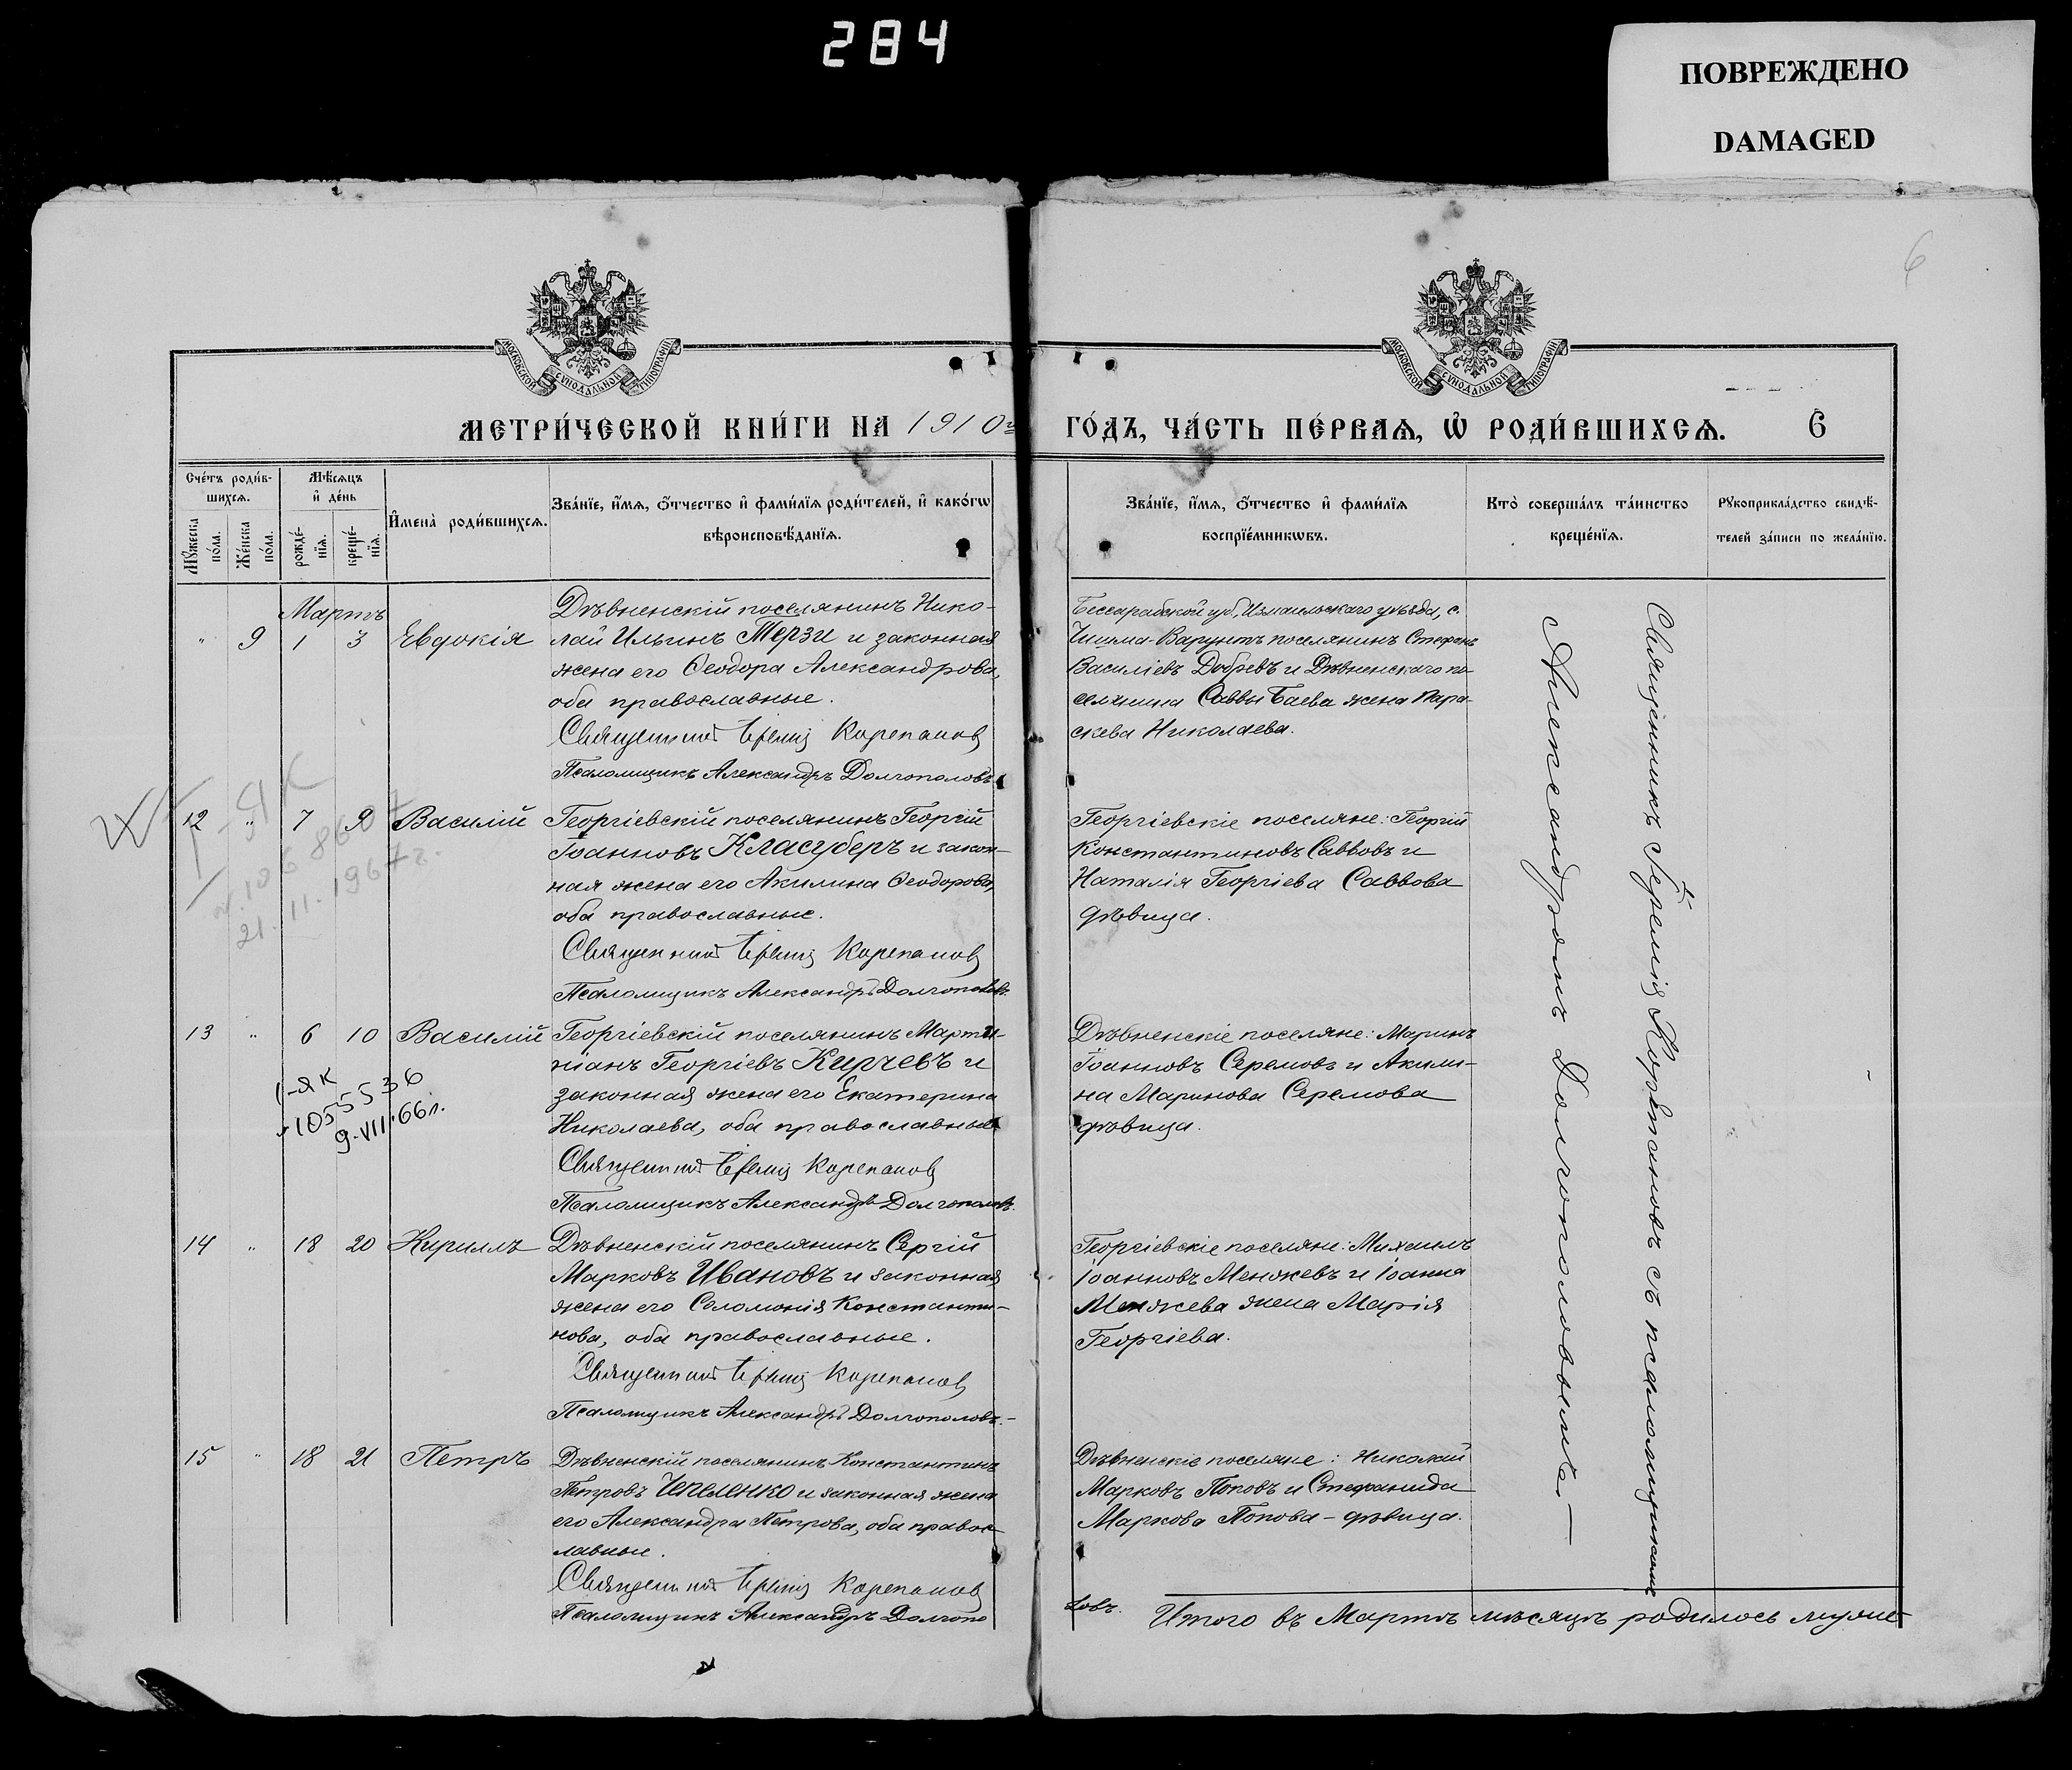 284
ПОВРЕЖДЕНО
DAMAGED
6
МОСКОВСКОЙ СѴНОДАЛЬНОЙ ТИПОГРАФІИ
МОСКОВСКОЙ СѴНОДАЛЬНОЙ ТИПОГРАФІИ
МЕТРИ́ЧЕСКОЙ КНИ́ГИ НА 1910й ГО́ДЪ, ЧА́СТЬ ПЕ́РВАѦ, Ѡ҆ РОДИ́ВШИХСѦ. 6
Сче́тъ роди́в-
шихсѧ.
Мꙋ́жеска
по́ла.
Же́нска
по́ла.
Мѣ́сѧцъ
и҆ де́нь
рожде́-
нїѧ.
креще́-
нїѧ.
И҆мена̀ роди́вшихсѧ.
Зва́нїе, и҆́мѧ, ѻ҆́тчество и҆ фами́лїѧ роди́телей, и҆ како́гѡ
вѣроисповѣ́данїѧ.
Зва́нїе, и҆́мѧ, ѻ҆́тчество и҆ фами́лїѧ
воспрїе́мникѡвъ.
Кто̀ соверша́лъ та́инство
креще́нїѧ.
Рꙋкоприкла́дство свидѣ́-
телей за́писи по жела́нїю.
Мартъ
" 9 1 3 Евдокія
Дѣвненскій поселянинъ Нико-
лай Ильинъ Терзи и законная
жена его Ѳеодора Александрова,
оба православные.
Священник Іеремія Корепанов
Псаломщикъ Александръ Долгополовъ
Бессарабской губ, Измаильскаго уѣзда, с.
Чишма-Варунтъ поселянинъ Стефанъ
Василіевъ Добревъ и Дѣвненскаго по-
селянина Саввы Баева жена Пара-
скева Николаева.
12 " 7 9 Василій
Георгіевскій поселянинъ Георгій
Іоанновъ Класуберъ и закон-
ная жена его Акилина Ѳеодорова,
оба православные.
Священник Іеремія Корепанов
Псаломщикъ Александръ Долгополовъ.
Георгіевскіе поселяне: Георгій
Константиновъ Саввовъ и
Наталія Георгіева Саввова
дѣвица.
21.11.1967г.
13 " 6 10 Василій
Георгіевскій поселянинъ Марти-
ніанъ Георгіевъ Кирчевъ и
законная жена его Екатерина
Николаева, оба православные
Священник Іеремія Корепанов
Псаломщикъ Александръ Долгополовъ.
Дѣвненскіе поселяне: Маринъ
Іоанновъ Серемовъ и Акили-
на Маринова Серемова
дѣвица.
I-ЯК
1055536
9.VII.66г.
14 " 18 20 Кириллъ
Дѣвненскій поселянинъ Сергій
Марковъ Ивановъ и законная
жена его Соломонія Константи-
нова, оба православные.
Священник Іеремія Корепанов
Псаломщикъ Александръ Долгополовъ.-
Георгіевскіе поселяне: Михаилъ
Іоанновъ Менжевъ и Іоанна
Менжева жена Марія
Георгіева.
15 " 18 21 Петръ
Дѣвненскій поселянинъ Константинъ
Петровъ Чепеленко и законная жена
его Александра Петрова, оба правос-
лавные.
Священник Іеремія Корепанов
Псаломщикъ Александръ Долгопо
ловъ.
Дѣвненскіе поселяне: Николай
Марковъ Поповъ и Стефанида
Маркова Попова - дѣвица.
Священникъ Іеремія Корепановъ съ псаломщикомъ
Александромъ Долгополовымъ.—
Итого въ Мартѣ мѣсяцѣ родилось муже-